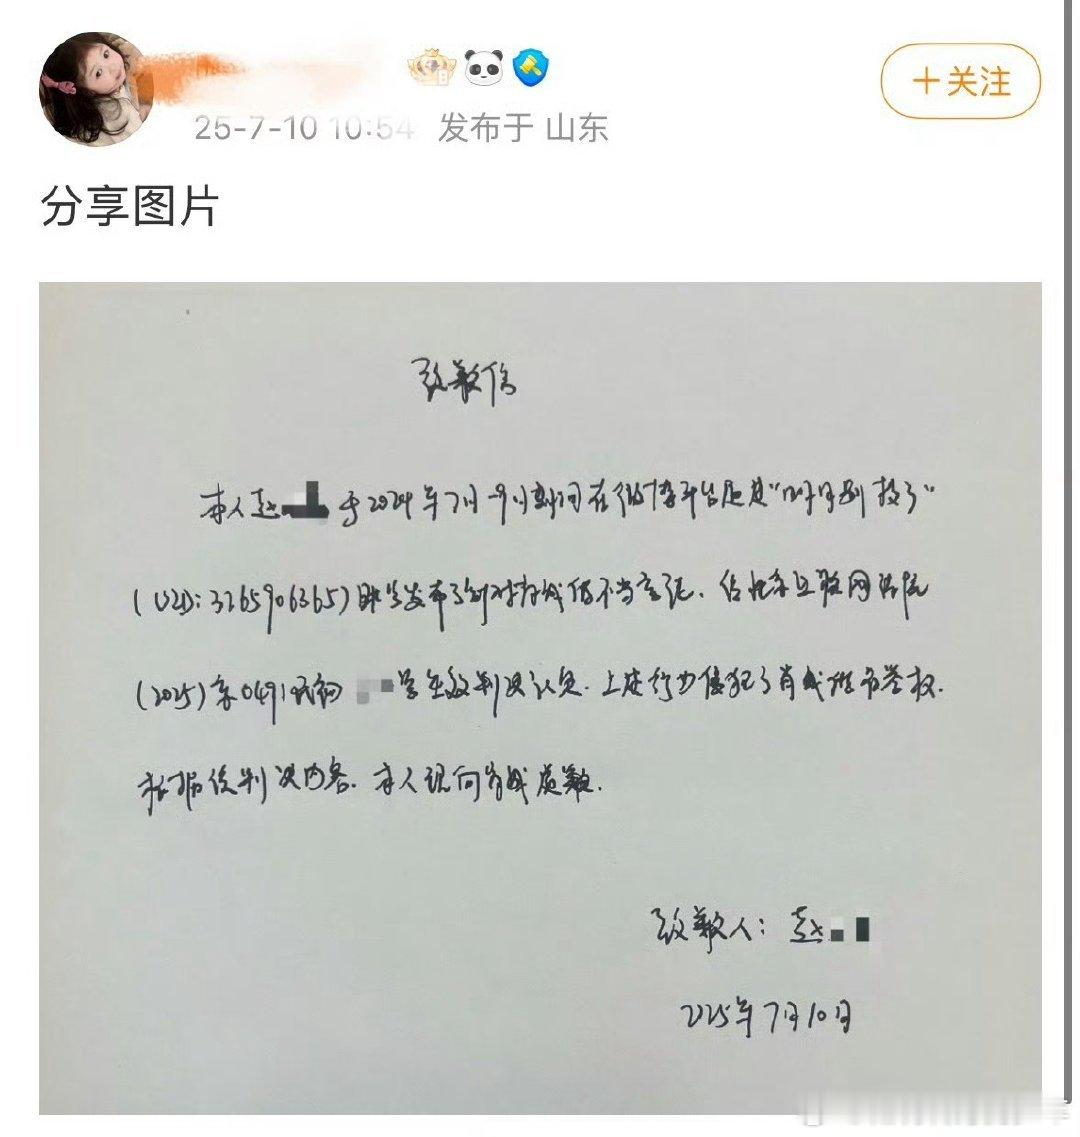 25-7-10 10:54 发布于 山东
+关注
分享图片
致歉信
本人赵 于2024年7月-9月期间在微博平台通过"明月别枝了"
(UID:3265906365)账号发布了针对肖战的不当言论.经北京互联网法院
(2025)京0491民初 号生效判决认定.上述行为侵犯了肖战的名誉权.
根据该判决内容.本人现向肖战致歉.
致歉人:赵
2025年7月10日